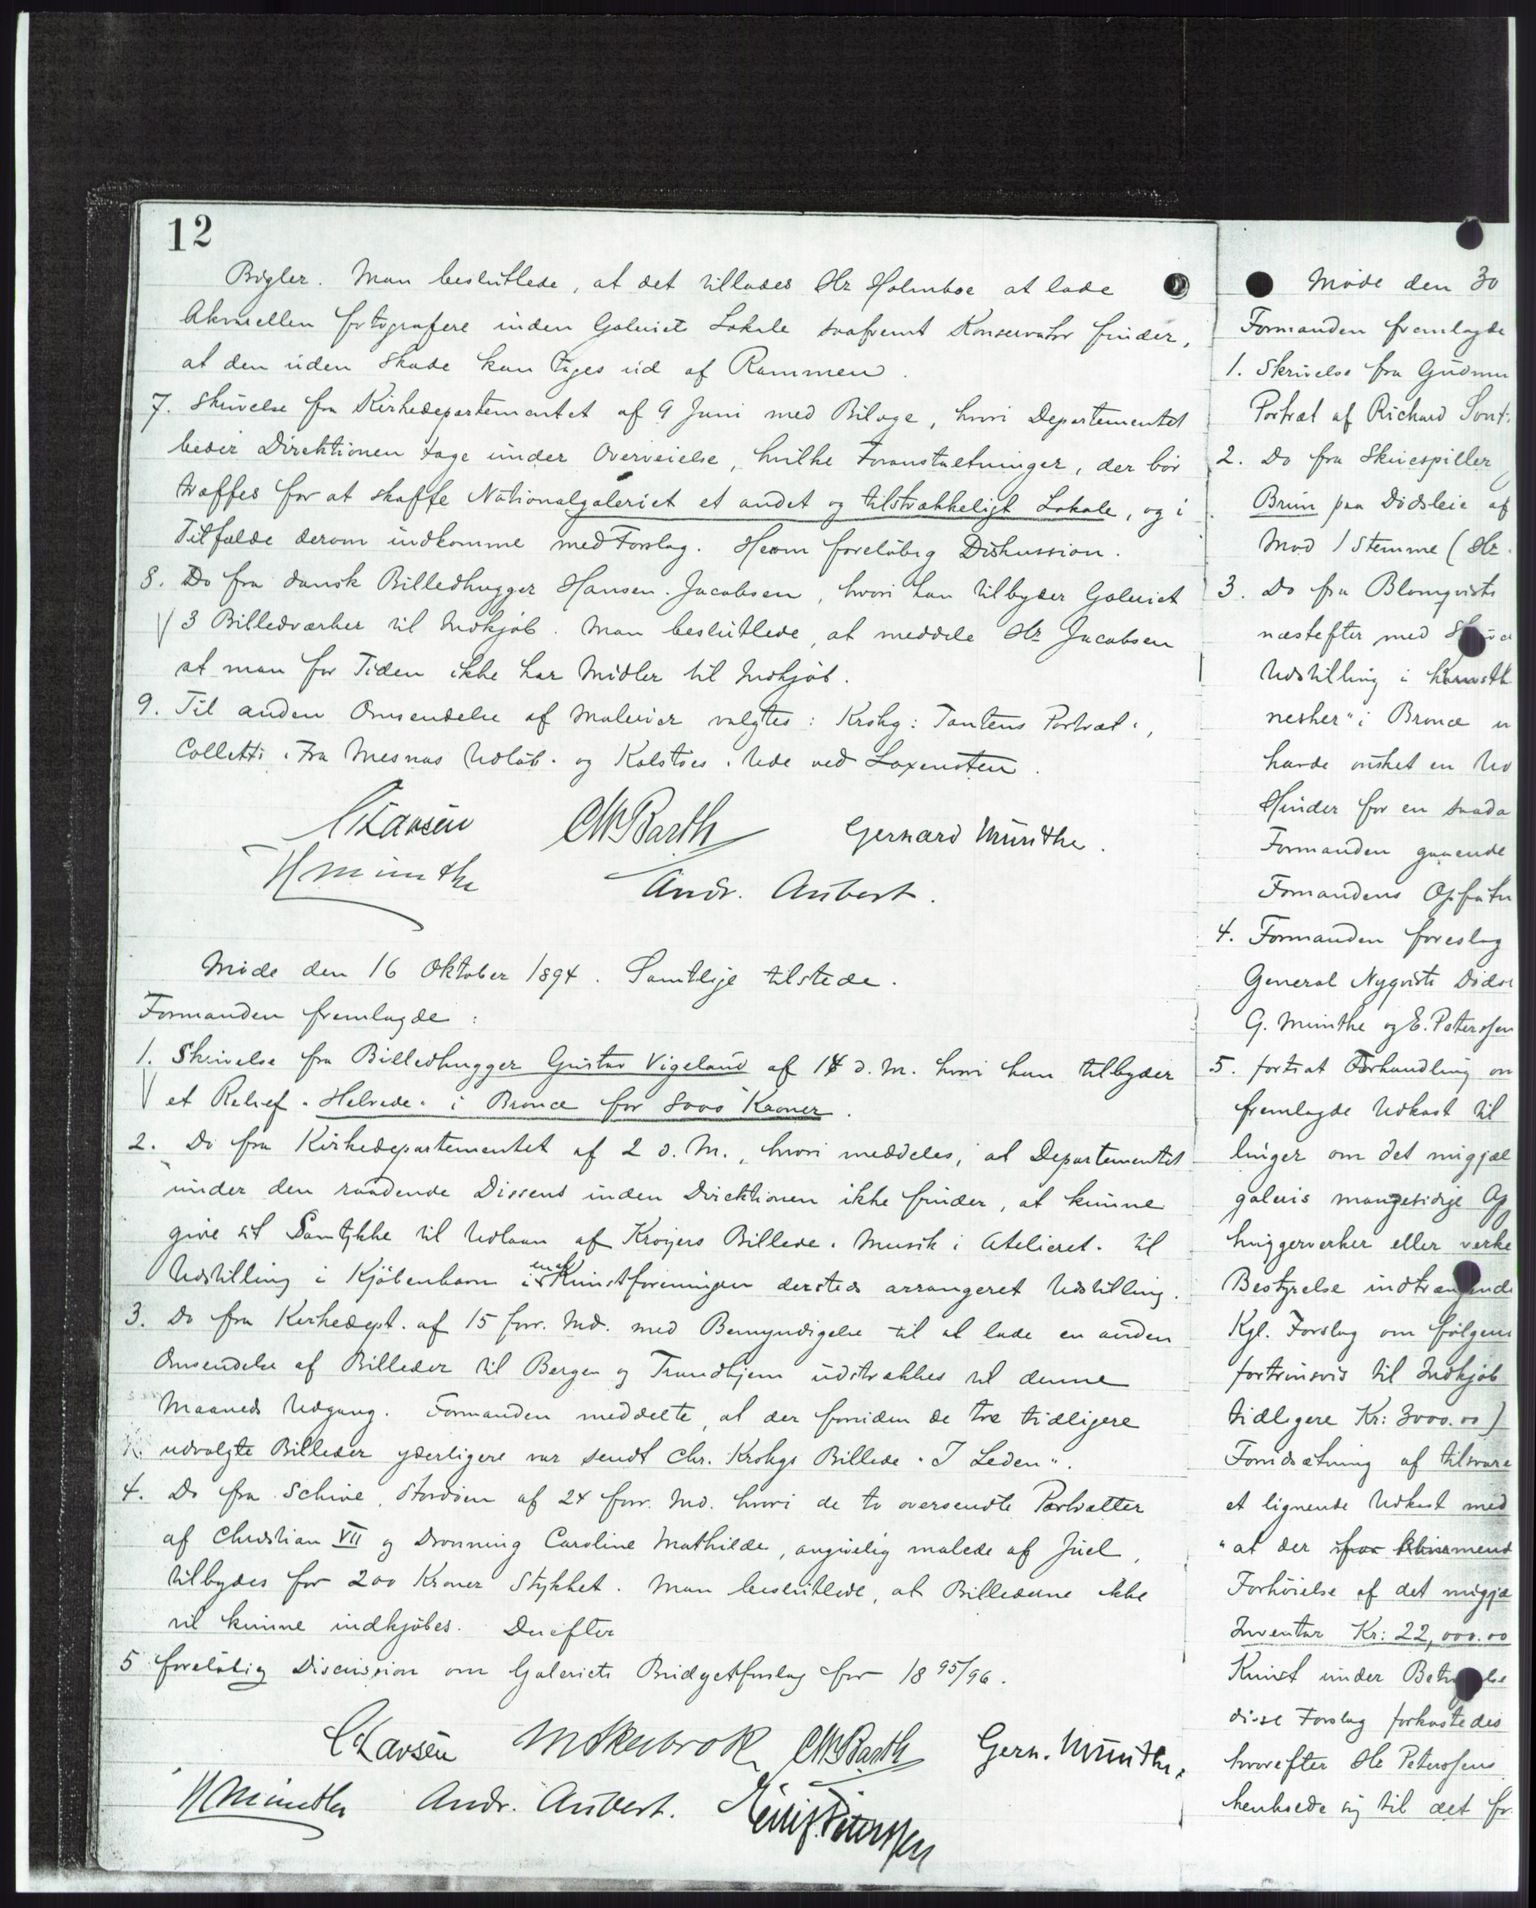 12
Bøgler. Man besluttede, at det tillades Hr Holmboe at lade
Akvarellen fotografere inden Galeriets Lokale saafremt Konservator finder,
at den uden Skade kan tages ud af Rammen.
7. Skrivelse fra Kirkedepartementet af 9 Juni med Bilage, hvori Departementet
beder Direktionen tage under Overveielse, hvilke Foranstaltninger, der bør
træffes for at skaffe Nationalgaleriet et andet og tilstrækkeligt Lokale, og i
Tilfælde derom indkomme med Forslag. Herom foreløbig Diskussion.
8. Do fra dansk Billedhugger Hansen-Jacobsen, hvori han tilbyder Galeriet
3 Billedværker til Indkjøb. Man besluttede, at meddele Hr Jacobsen
at man for Tiden ikke har Midler til Indkjøb.
9. Til anden Omsendelse af Malerier valgtes: Krohg: Tantens Portræt",
Colletts "Fra Mesnas Udløb" og Kolstøes "Ude ved Laxensten.
C Larsen CWBarth Gerhard Munthe.
H Munthe Andr. Aubert.
Møde den 16 Oktober 1894. Samtlige tilstede.
Formanden fremlagde:
1. Skrivelse fra Billedhugger Gustav Vigeland af 14 d. M. hvori han tilbyder
et Relief "Helvede" i Bronce for 8000 Kroner.
2. Do fra Kirkedepartementet af 2 d. M., hvori meddeles, at Departementet
under den raadende Dissens inden Direktionen ikke finder, at kunne
give sit Samtykke til Udlaan af Krøyers Billede "Musik i Atelieret" til
Udstilling i Kjøbenhavn i en af Kunstforeningen dersteds arrangeret Udstilling.
3. Do fra Kirkedept. af 15 forr. Md. med Bemyndigelse til at lade en anden
Omsendelse af Billeder til Bergen og Trondhjem udstrækkes til denne
Maaneds Udgang. Formanden meddelte, at der foruden de tre tidligere
udvalgte Billeder yderligere var sendt Chr. Krohgs Billede "I Leden".
4. Do fra Schive, Stordøen af 24 forr. Md. hvori de to oversendte Portrætter
af Christian VII og Dronning Caroline Mathilde, angivelig malede af Juel,
tilbydes for 200 Kroner Stykket. Man besluttede, at Billederne ikke
vil kunne indkjøbes. Derefter
5 foreløbig Discussion om Galeriets Budgetforslag for 18 95/96.
C Larsen CWBarth Gerh. Munthe.
H Munthe Andr. Aubert. Eilif Peterssen
Møde den 30
Formanden fremlagde
1. Skrivelse fra Gudmu
Portræt af Richard
2. Do fra Skuespiller
Brun paa Dødsleie af
Mod 1 Stemme (Hr.
3. Do fra Blomqvists
næstefter med
Udstilling i
nesker" i Bronce
havde ønsket en Ud
Hinder for en saada
Formanden gaaende
Formandens Opfatn
4. Formanden foreslog
General Nyqvists Døds
G. Munthe og E. Peterssen
5. fortsat Forhandling om
fremlagde Udkast til
linger om det migjæl
galeris mangesidige Op
huggerverker eller verke
Bestyrelse indtrængende
Kgl. Forslag om følgen
fortrinsvis til Indkjøb
tidligere Kr: 3000.00)
Forudsætning af tilsvare
et lignende Udkast med
"at der
Forhøielse af det migjæ
Inventar Kr: 22,000.00
Kunst under
disse Forslag forkastedes
hvorefter Hr Peterssens
henholdede sig til det fr